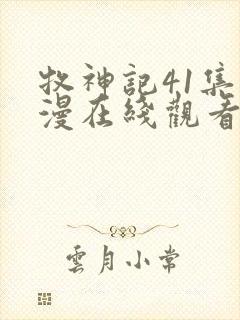 牧神記41集
漫在綫觀看
雲月小常